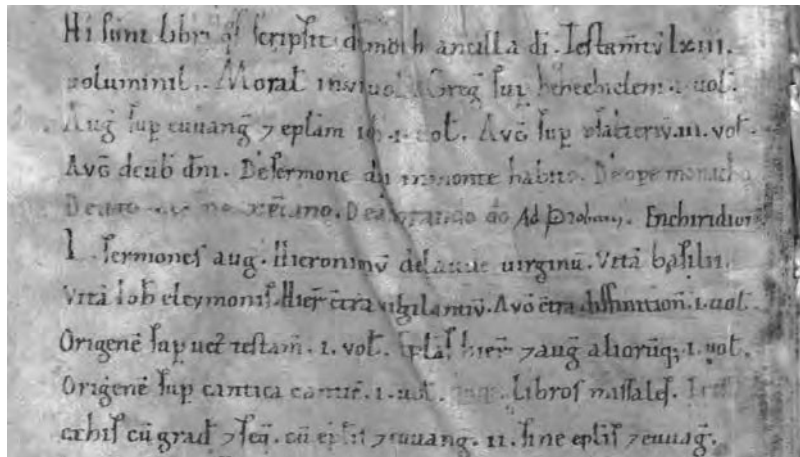 Hi sunt libri qͥ scripsit diemoth ancilla dī. Testam̄tū lxiii.
voluminil. Moral in vi uol. Greḡ suꝑ hiehechielem .i. uol.
Auḡ suꝑ euuanḡ ⁊ ep̄lam .i. vol. Avḡ suꝑ psalteriū .iii. vol.
Avḡ de ciuit̄ dm̄. De sermone dn̄i in monte habito. De ope monacho
De no xp̄iano. De orando dō Ad Probam. Enchiridion
L. sermones aug. Hieronimū de laude uirginū. Vitā basilii.
Vitā Ioh̄ eleymonis. Hier̄ cͦtra vigilantiū. Avḡ cͦtra .i. uol.
Origenē suꝑ uet̄ testam̄. i. vol. Ep̄las hier̄ ⁊ auḡ aliorūq; i. uol.
Origenē suꝑ cantica cantic̄. i. uol. Libros missales.
cū grad̄ ⁊ seq̄. cū ep̄lis ⁊ euuang. ii. sine ep̄lis ⁊ euuaḡ.